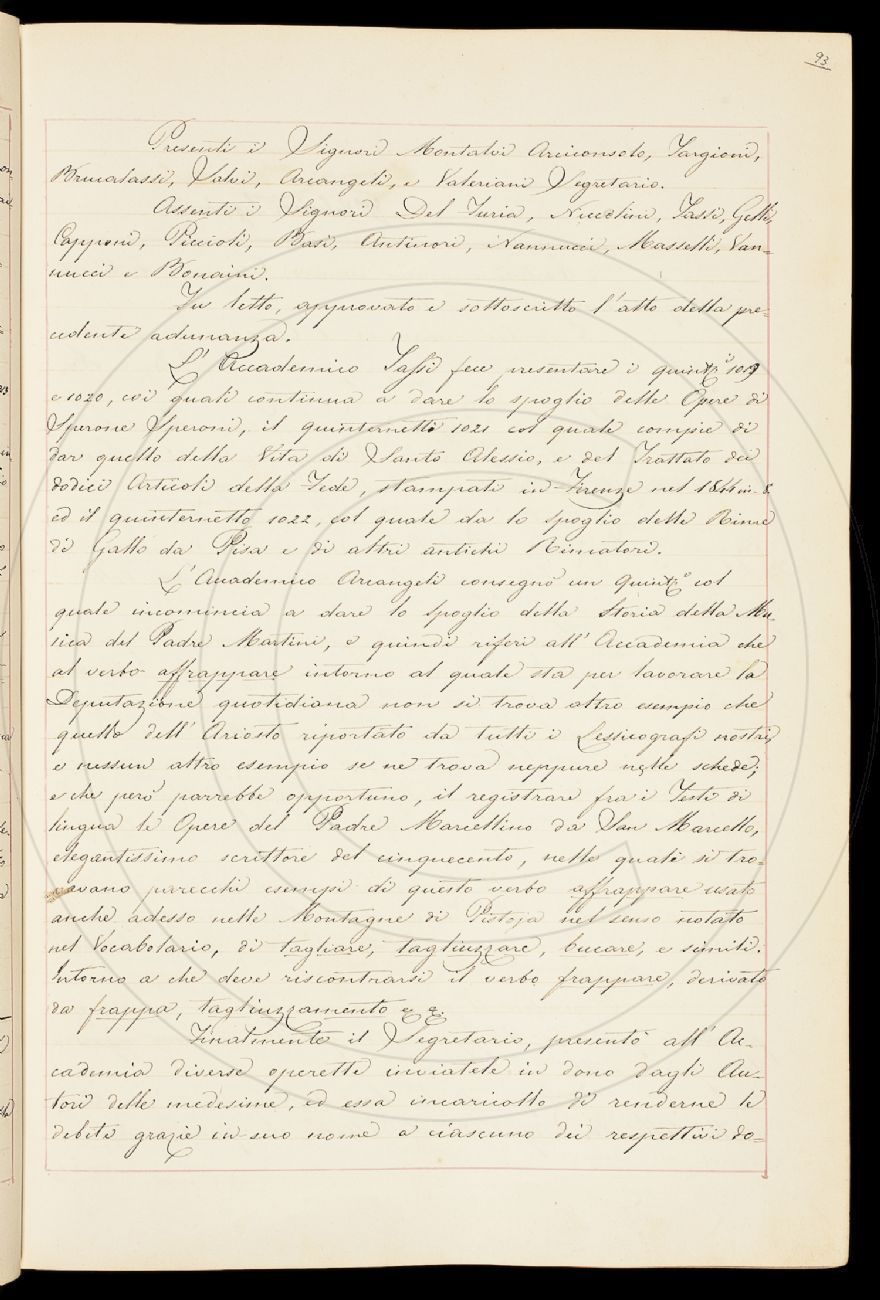 93
Presenti i Signori Montalvi Arciconsolo, Targioni,
Brucalassi, Salvi, Arcangeli, e Valeriani Segretario.
Assenti i Signori Del Furia, Niccolini, Tassi, Gelli,
Capponi, Piccioli, Basi, Antinori, Nannucci, Masselli, Van=
nucci e Bonaini.
Fu letto, approvato e sottoscritto l'atto della pre=
cedente adunanza.
L'Accademico Tassi fece presentare i quint.i 1019
e 1020, coi quali continua a dare lo spoglio delle Opere di
Sperone Speroni, il quinternetto 1021 col quale compie di
dar quello della Vita di Santo Alessio, e del Trattato dei
dodici Articoli della Fede, stampati in Firenze nel 1844 in-8.
ed il quinternetto 1022, col quale da lo spoglio delle Rime
di Gallo da Pisa e di altri antichi Rimatori.
L'Accademico Arcangeli consegnò un Quint.o col
quale incomincia a dare lo spoglio della Storia della Mu=
sica del Padre Martini, e quindi riferì all'Accademia che
al verbo affrappare intorno al quale sta per lavorare la
Deputazione quotidiana non si trova altro esempio che
quello dell'Ariosto riportato da tutti i Lessicografi nostri,
e nessun altro esempio se ne trova neppure nelle schede;
e che però parrebbe opportuno, il registrare fra i Testi di
lingua le Opere del Padre Marcellino da San Marcello,
elegantissimo scrittore del cinquecento, nelle quali si tro=
vavano parecchi esempi di questo verbo affrappare usato
anche adesso nelle Montagne di Pistoja nel senso notato
nel Vocabolario, di tagliare, tagliuzzare, bucare, e simili.
Intorno a che deve riscontrarsi il verbo frappare, derivato
da frappa, tagliuzzamento &. &.
Finalmente il Segretario, presentò all'Ac=
cademia diverse operette inviatele in dono dagli Au=
tori delle medesime, ed essa incaricollo di renderne le
debite grazie in suo nome a ciascuno dei respettivi do=